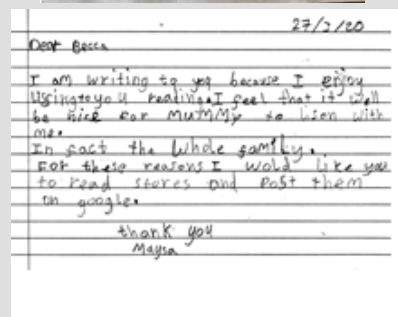 27/3/20
Dear Becca
I am writing to you because I enjoy
Lisingtoyou reading. I feel that it will
be nice for mummy to lisen with
me.
In fact the whole family.
For these reasons I wold like you
to read stores and Post them
on google.
thank you
Maysa